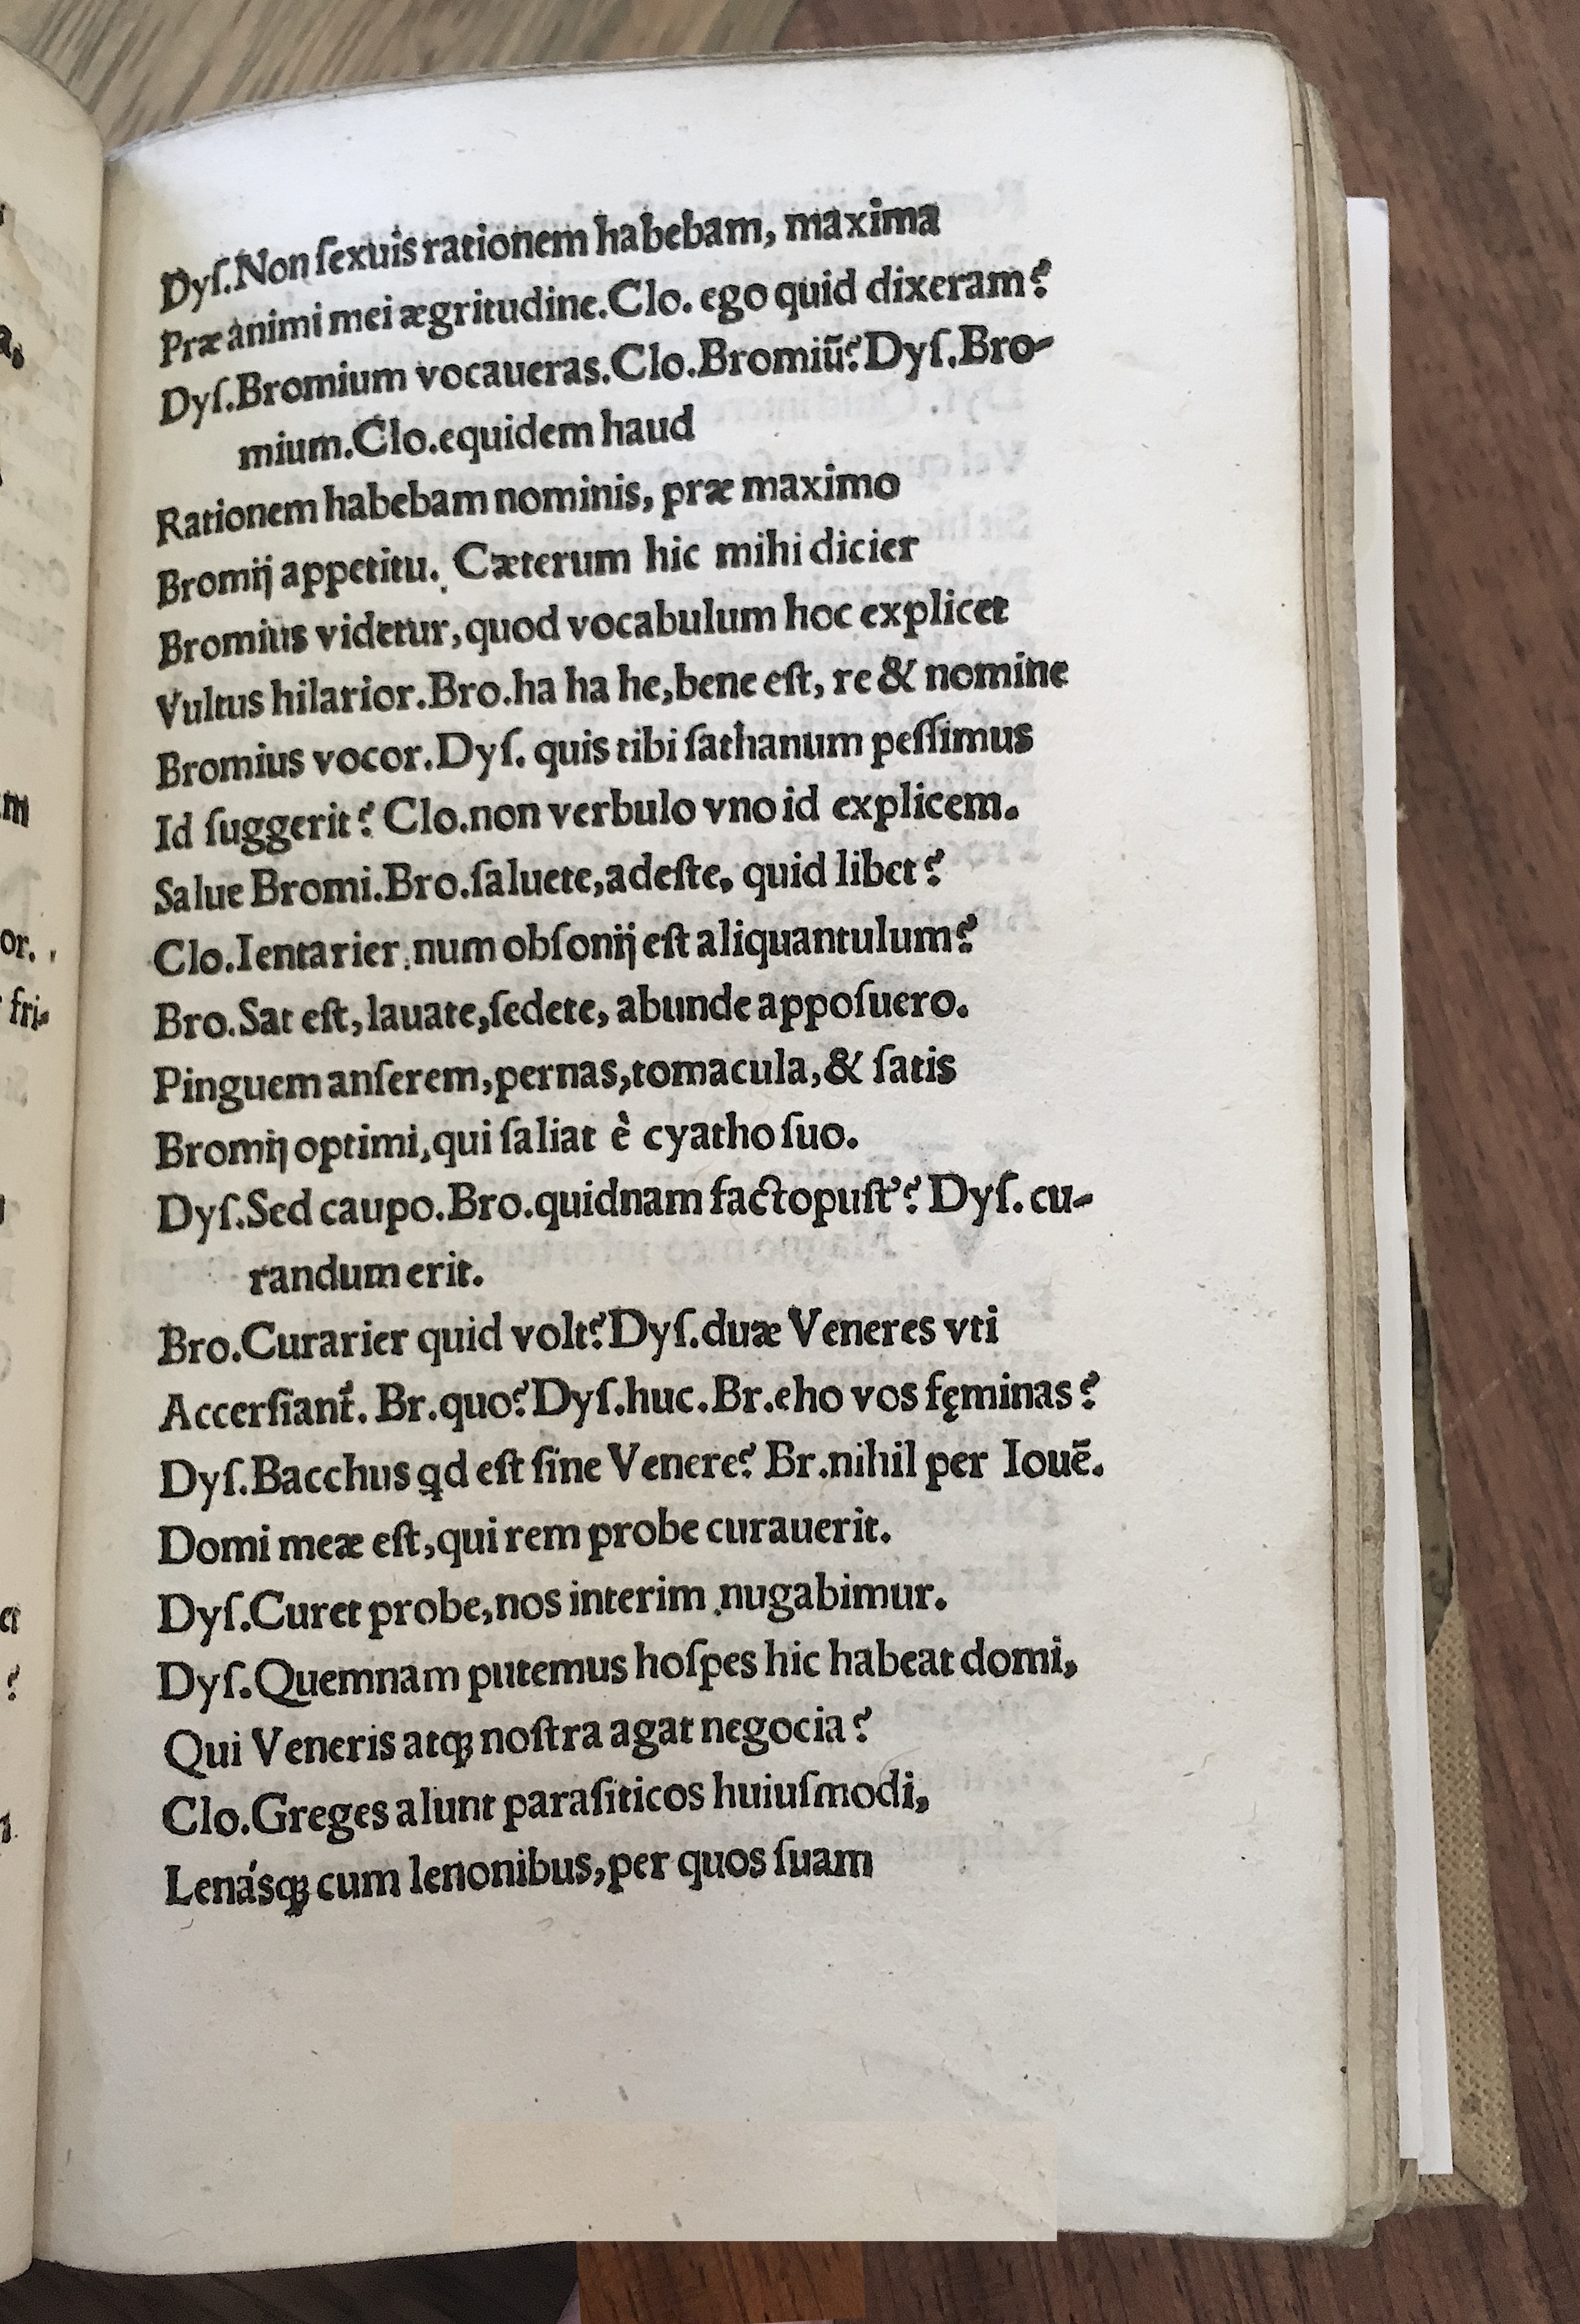 Dyſ.Non ſexuis rationem habebam, maxima
Præ animi mei ægritudine.Clo. ego quid dixeram?
Dyſ.Bromium vocaueras.Clo.Bromiũ?Dyſ.Bro-
mium.Clo.equidem haud
Rationem habebam nominis, præ maximo
Bromij appetitu. Cæterum hic mihi dicier
Bromius videtur,quod vocabulum hoc explicet
Vultus hilarior.Bro.ha ha he,bene eſt, re & nomine
Bromius vocor.Dyſ. quis tibi ſathanum peſſimus
Id ſuggerit? Clo.non verbulo vno id explicem.
Salue Bromi.Bro.ſaluete,adeſte, quid libet?
Clo.Ientarier,num obſonij eſt aliquantulum?
Bro.Sat eſt,lauate,ſedete, abunde appoſuero.
Pinguem anſerem,pernas,tomacula,& ſatis
Bromij optimi,qui ſaliat è cyatho ſuo.
Dyſ.Sed caupo.Bro.quidnam factopuſt’? Dyſ. cu-
randum erit.
Bro.Curarier quid volt?Dyſ.duæ Veneres vti
Accerſiant᷑. Br.quo?Dyſ.huc.Br.eho vos fęminas?
Dyſ.Bacchus qd eſt ſine Venere? Br.nihil per Iouẽ.
Domi meæ eſt,qui rem probe curauerit.
Dyſ.Curet probe,nos interim nugabimur.
Dyſ.Quemnam putemus hoſpes hic habeat domi,
Qui Veneris atqꝫ noſtra agat negocia?
Clo.Greges alunt paraſiticos huiuſmodi,
Lenásqꝫ cum lenonibus,per quos ſuam